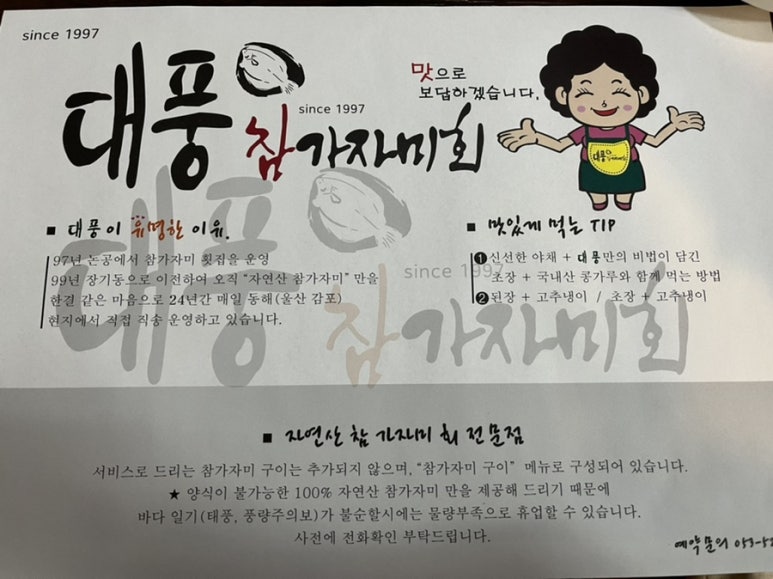 since 1997
대풍
since 1997
참가자미회
맛으로
보답하겠습니다.
대풍
■ 대풍이 유명한 이유.
97년 논공에서 참가자미 횟집을 운영
99년 장기동으로 이전하여 오직 "자연산 참가자미" 만을
한결 같은 마음으로 24년간 매일 동해(울산 감포)
현지에서 직접 직송 운영하고 있습니다.
■ 맛있게 먹는 TIP
❶ 신선한 야채 + 대풍만의 비법이 담긴
초장 + 국내산 콩가루와 함께 먹는 방법
❷ 된장 + 고추냉이 / 초장 + 고추냉이
대풍
since 1997
참가자미회
■ 자연산 참 가자미 회 전문점
서비스로 드리는 참가자미 구이는 추가되지 않으며, "참가자미 구이" 메뉴로 구성되어 있습니다.
★ 양식이 불가능한 100% 자연산 참가자미 만을 제공해 드리기 때문에
바다 일기(태풍, 풍량주의보)가 불순할시에는 물량부족으로 휴업할 수 있습니다.
사전에 전화확인 부탁드립니다.
예약문의 053-5